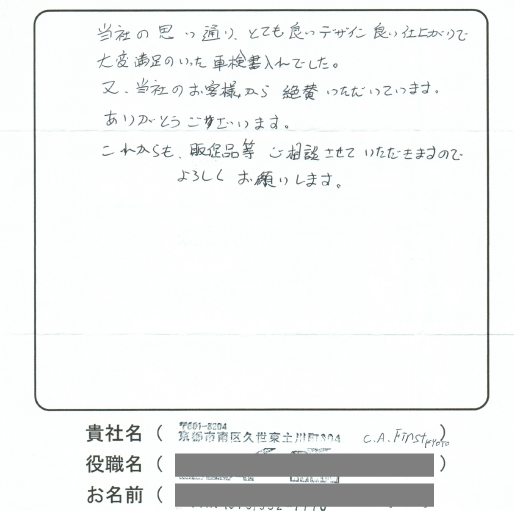 当社の思い通り、とても良いデザイン良い仕上がりで
大変満足のいった車検書入れでした。
又、当社のお客様から絶賛いただいています。
ありがとうございます。
これからも、販促品等ご相談させていただきますので
よろしくお願いします。
貴社名（ 〒601-8204
京都市南区久世東土川町304 C.A.First kyoto ）
役職名（ ）
お名前（